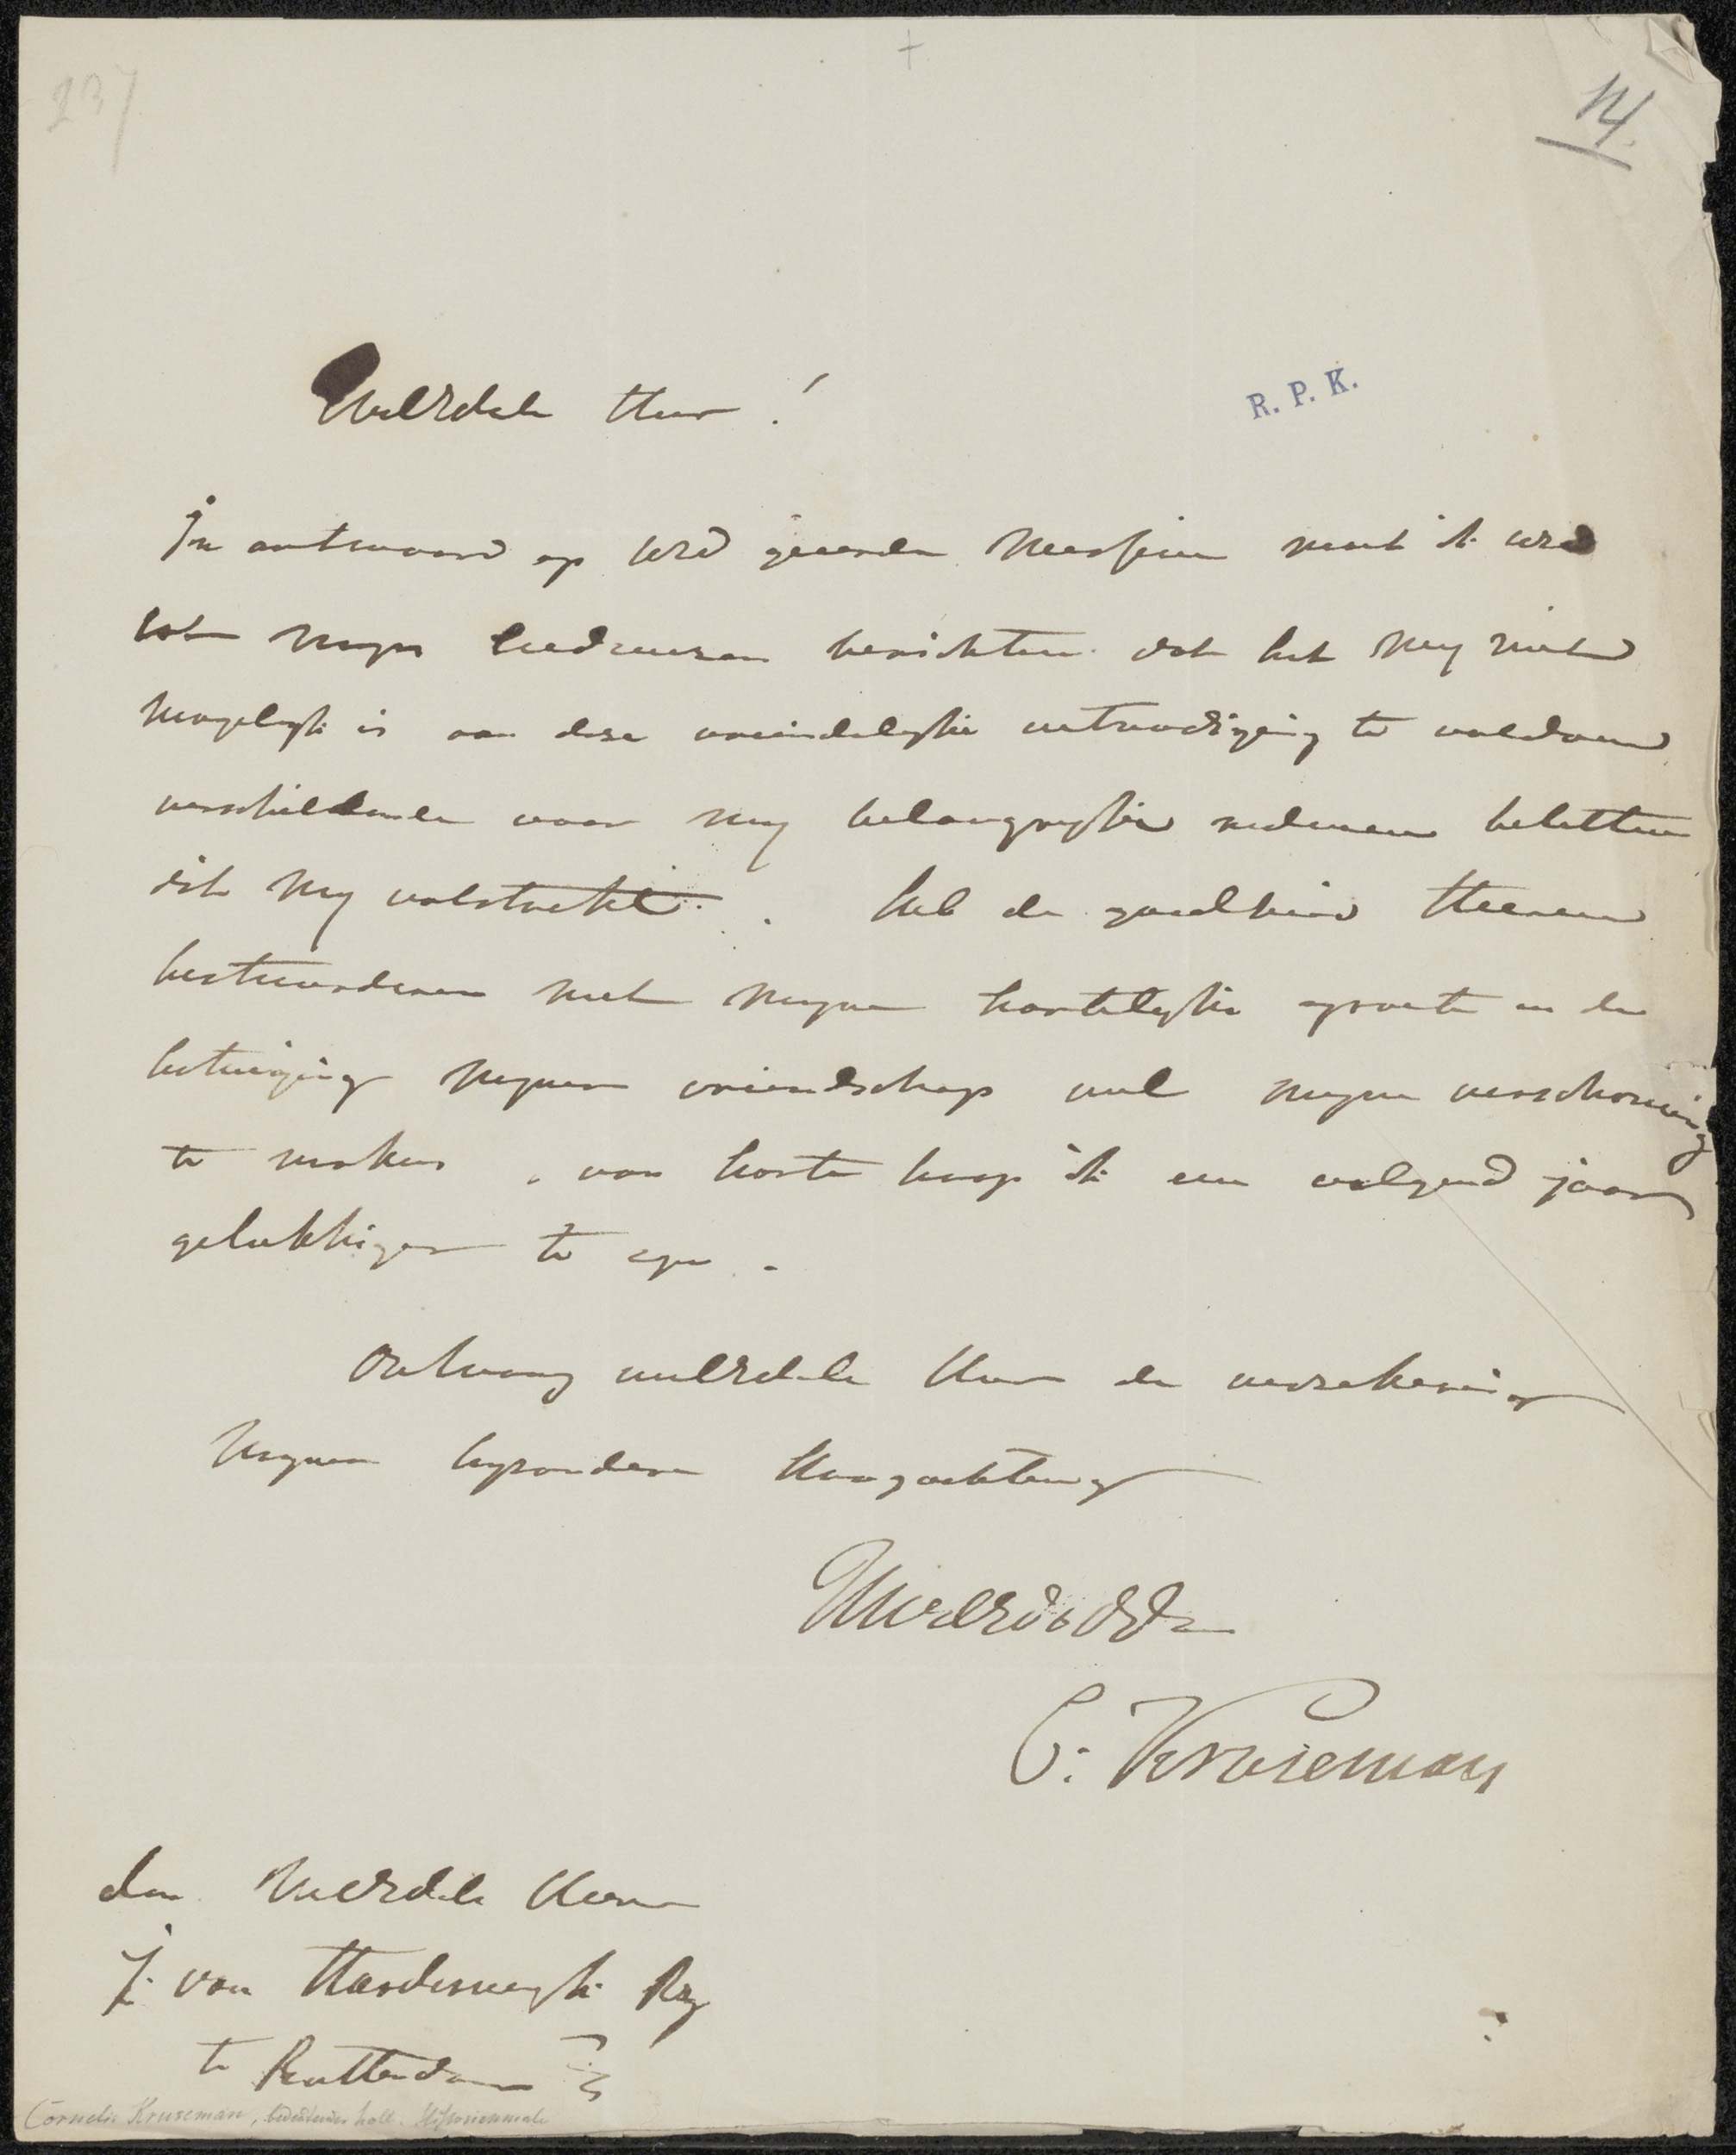 237
14.
WelEdele Heer!
R. P. K.
In antwoord op UEd geeerde Missive moet ik UEd
tot myn leedwezen berichten dat het my niet
mogelyk is aan deze vriendelyke uitnodiging te voldoen
verschillende voor my belangryke redenen beletten
dit my volstrekt. heb de goedheid Heeren
bestuurderen met mynen hartelyke groete en de
betuiging myner vriendschap wel myne verschoning
te maken, van harte hoop ik een volgend jaar
gelukkiger te zyn.
Ontvang welEdele Heer de verzekering
myner byzondere Hoogachting
C: Kruseman
den WelEdele Heer
J. van Harderwyk Rzn
te Rotterdam
Cornelis Kruseman, holl. Historienmaler